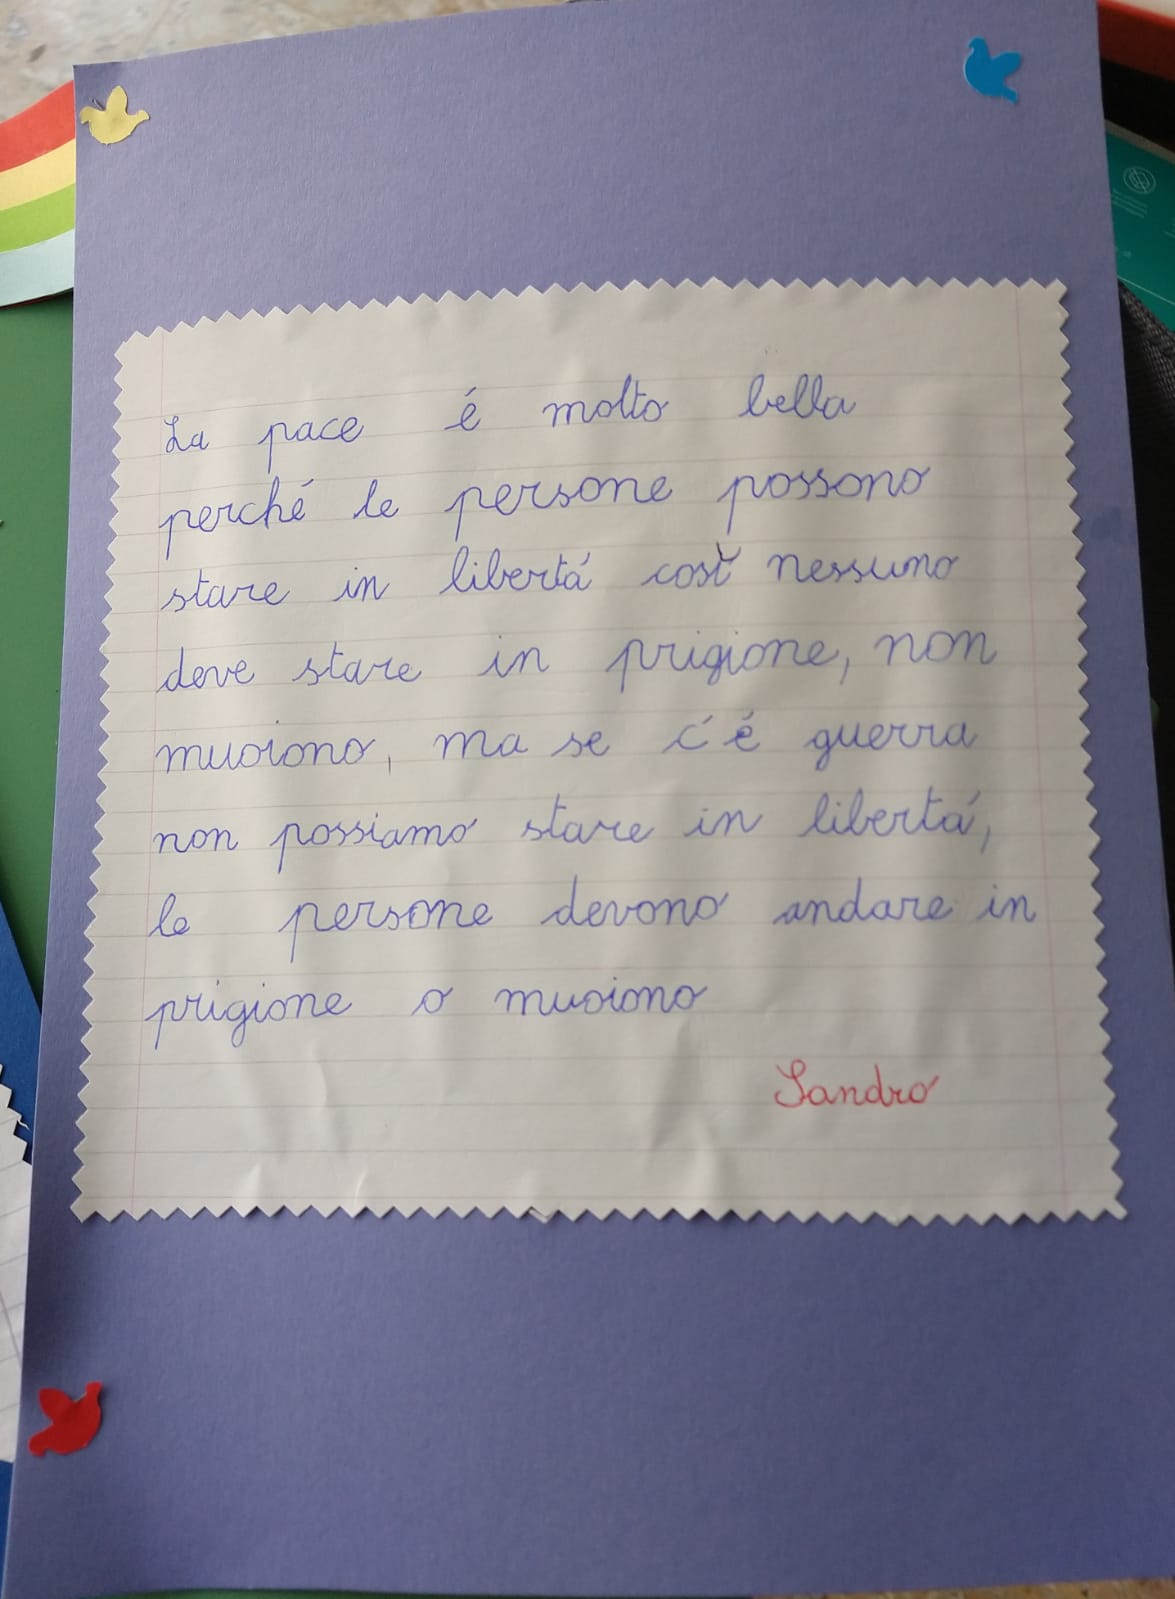 La pace é molto bella
perché le persone possono
stare in libertá così nessuno
deve stare in prigione, non
muoiono, ma se c'é guerra
non possiamo stare in libertá,
le persone devono andare in
prigione o muoiono
Sandro